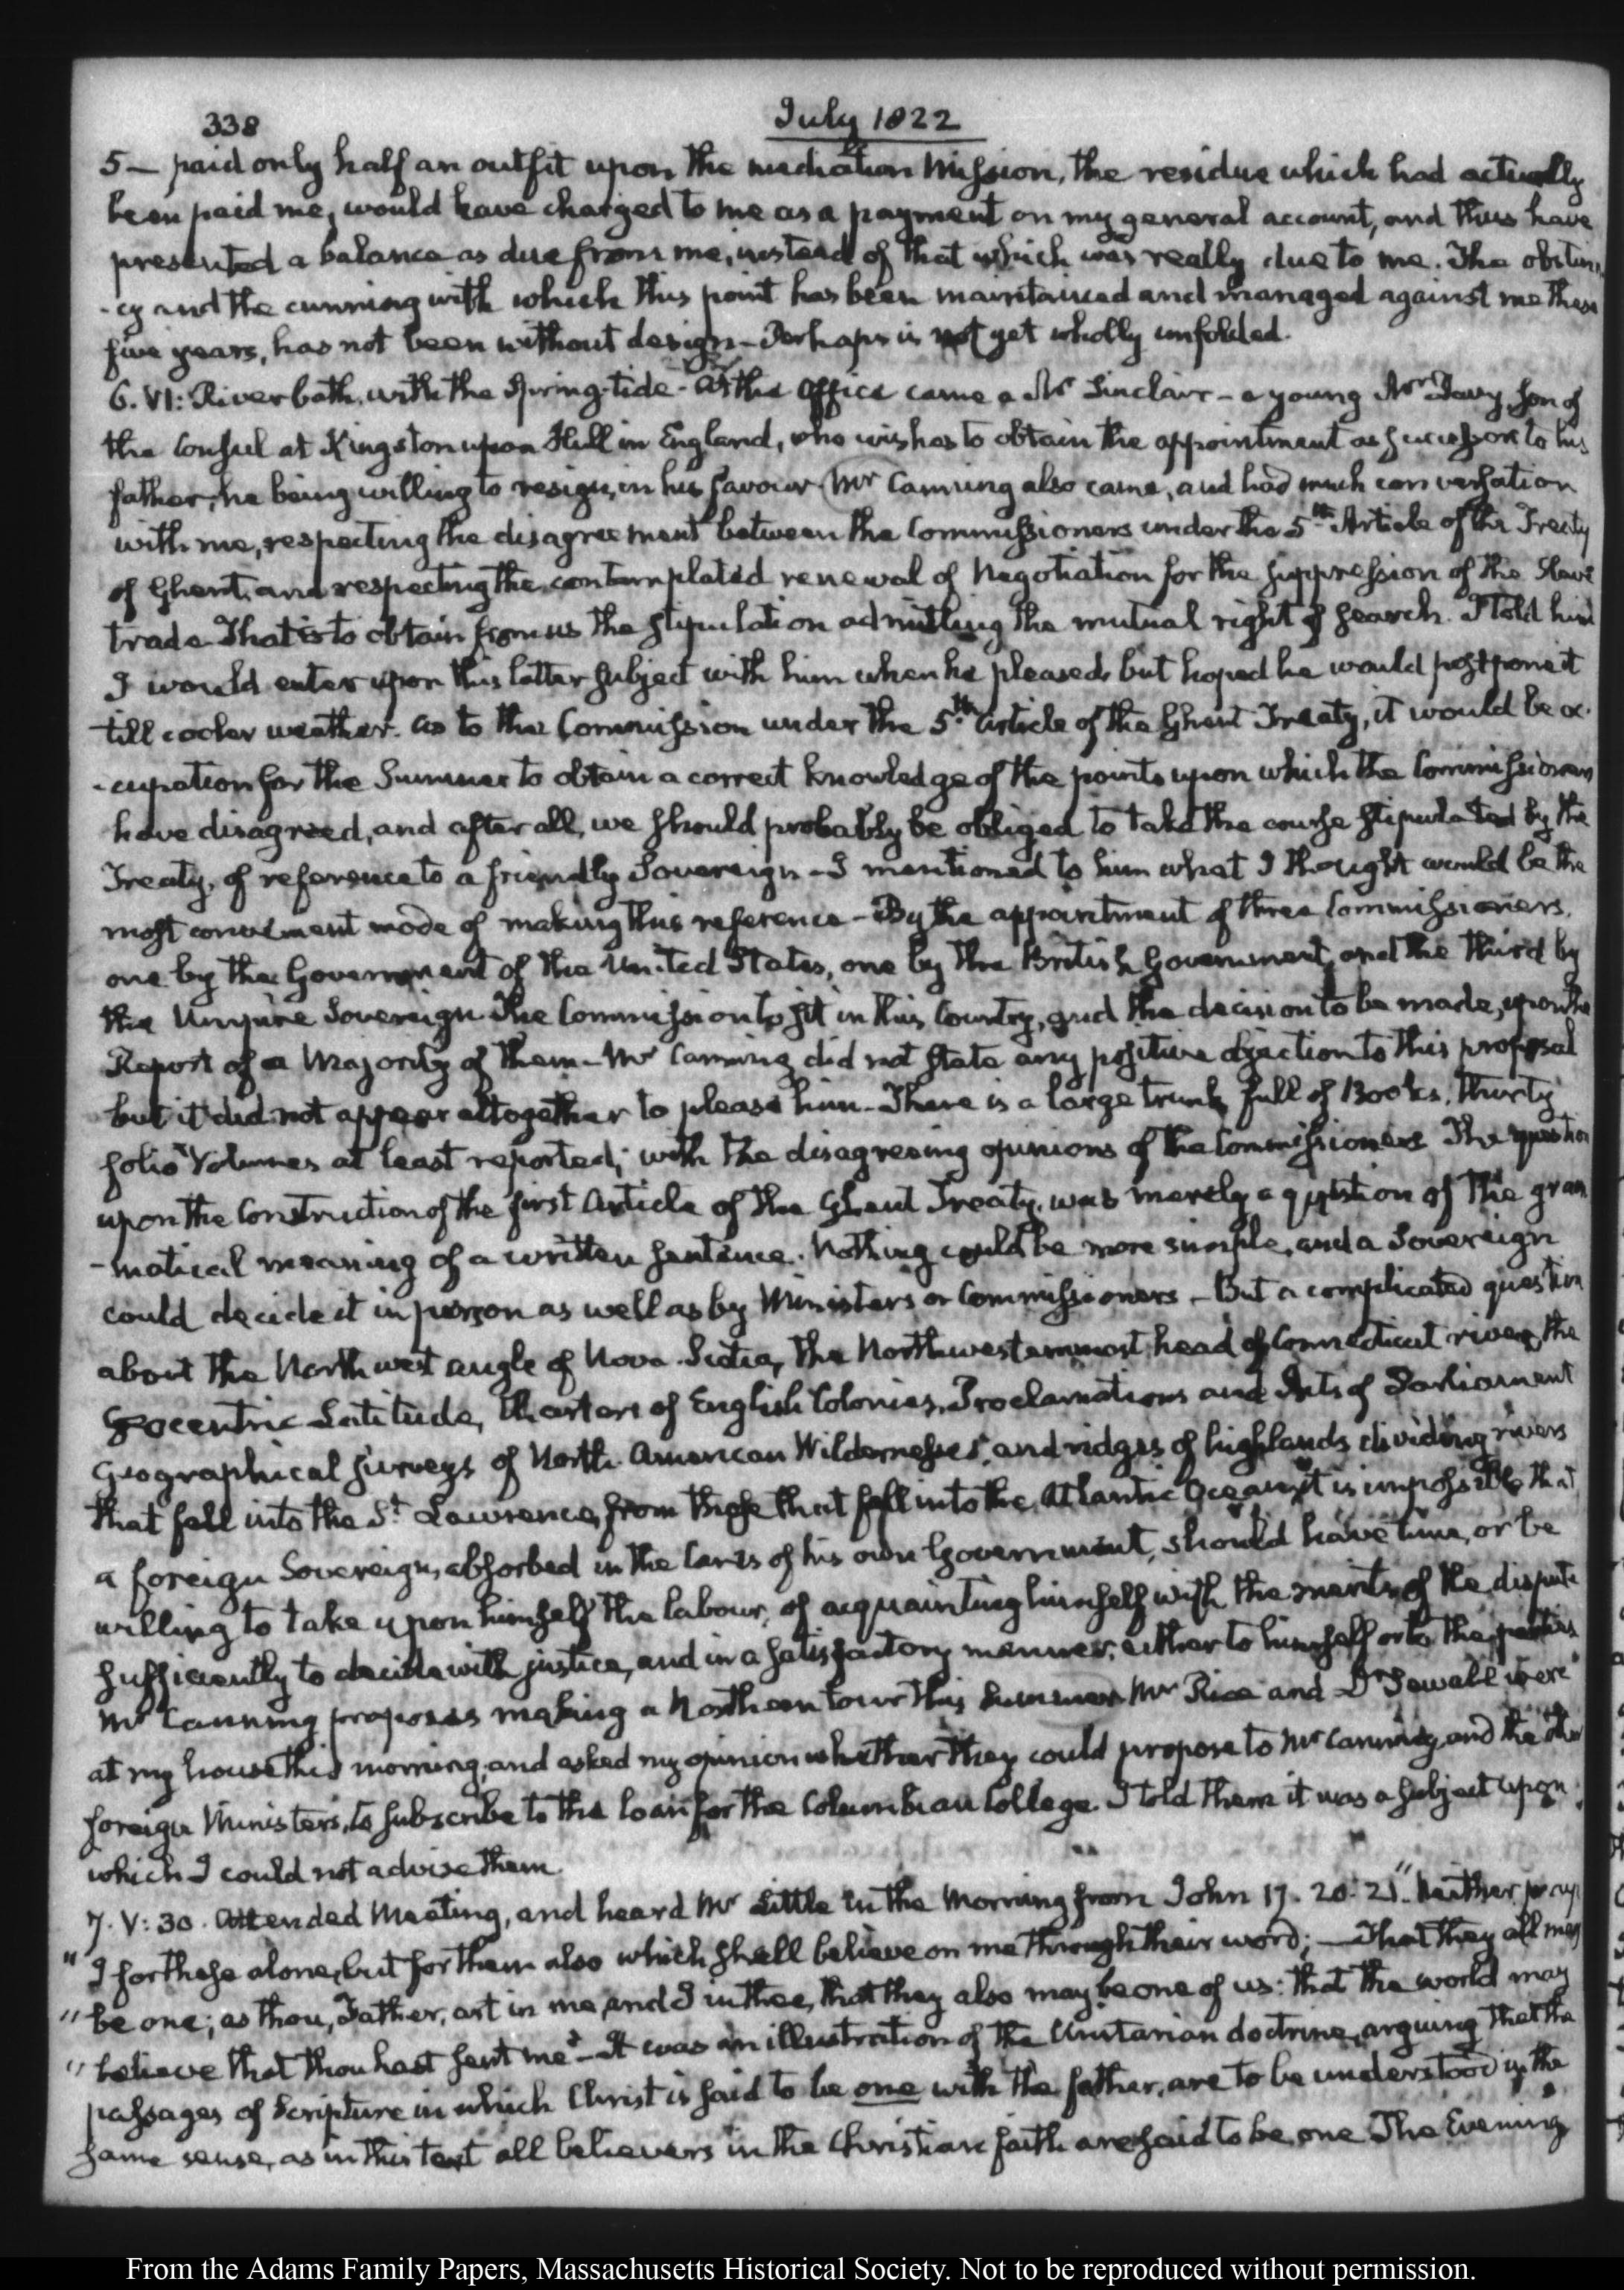 338
July 1822
5 — paid only half an outfit upon the mediation Mission, the residue which had actually
been paid me, would have charged to me as a payment on my general account, and thus have
presented a balance as due from me, instead of that which was really due to me. The obstin
-cy and the cunning with which this point has been maintained and managed against me these
five years, has not been without design — Perhaps is not yet wholly unfolded.
6. VI: River bath, with the Spring-tide — At the Office came a Mr Sinclair — a young Mr Davy, Son of
the Consul at Kingston upon Hull in England, who wishes to obtain the appointment as successor to his
father, he being willing to resign, in his favour Mr Canning also came, and had much conversation
with me, respecting the disagreement between the Commissioners under the 5th Article of the Treaty
of Ghent, and respecting the contemplated renewal of Negotiation for the suppression of the Slave
trade That is to obtain from us the stipulation admitting the mutual right of search. I told him
I would enter upon this latter subject with him when he pleased, but hoped he would postpone it
till cooler weather. As to the Commission under the 5th Article of the Ghent Treaty, it would be oc
-cupation for the Summer to obtain a correct knowledge of the points upon which the Commissioners
have disagreed, and after all, we should probably be obliged to take the course stipulated by the
Treaty, of reference to a friendly Sovereign — I mentioned to him what I thought would be the
most convenient mode of making this reference — By the appointment of three Commissioners,
one by the Government of the United States, one by the British Government, and the third by
the Umpire Sovereign The Commission to sit in this Country, and the decision to be made, upon the
Report of a Majority of them — Mr Canning did not state any positive objection to this proposal
but it did not appear altogether to please him — There is a large trunk full of Books, thirty
folio Volumes at least reported, with the disagreeing opinions of the Commissioners The question
upon the Construction of the first Article of the Ghent Treaty, was merely a question of the gram
-matical meaning of a written sentence. Nothing could be more simple, and a Sovereign
could decide it in person as well as by Ministers or Commissioners — But a complicated question
about the North west angle of Nova-Scotia, the Northwesternmost head of Connecticut river, the
Geocentric Latitude, Charters of English Colonies, Proclamations and Acts of Parliament
Geographical surveys of North-American Wildernesses, and ridges of highlands dividing rivers
that fall into the St Lawrence, from those that fall into the Atlantic Ocean, it is impossible that
a foreign Sovereign, absorbed in the Cares of his own Government, should have time, or be
willing to take upon himself the labour, of acquainting himself with the merits of the dispute
sufficiently to decide with justice, and in a satisfactory manner, either to himself or to the parties
Mr Canning proposes making a Northern tour this Summer Mr Rice and Dr Sewall were
at my house this morning, and asked my opinion whether they could propose to Mr Canning and the other
foreign Ministers, to subscribe to the loan for the Columbian College. I told them it was a subject upon
which I could not advise them.
7. V: 30. Attended Meeting, and heard Mr Little in the Morning from John 17. 20. 21. "Neither pray
"I for these alone, but for them also which shall believe on me through their word; — That they all may
"be one; as thou, Father, art in me, and I in thee, that they also may be one of us: that the world may
"believe that thou hast sent me" — It was an illustration of the Unitarian doctrine, arguing that the
passages of Scripture in which Christ is said to be one with the father, are to be understood in the
same sense, as in this text all believers in the Christian faith are said to be one The Evening
From the Adams Family Papers, Massachusetts Historical Society. Not to be reproduced without permission.